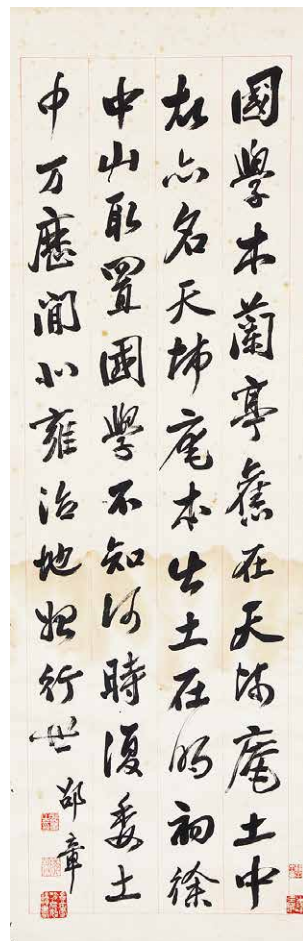 國學本蘭亭舊在天師庵土中
故亦名天師庵本出土在明初徐
中山取置國學不知何時復委土
中万歷間北雍治地始行世
邵章